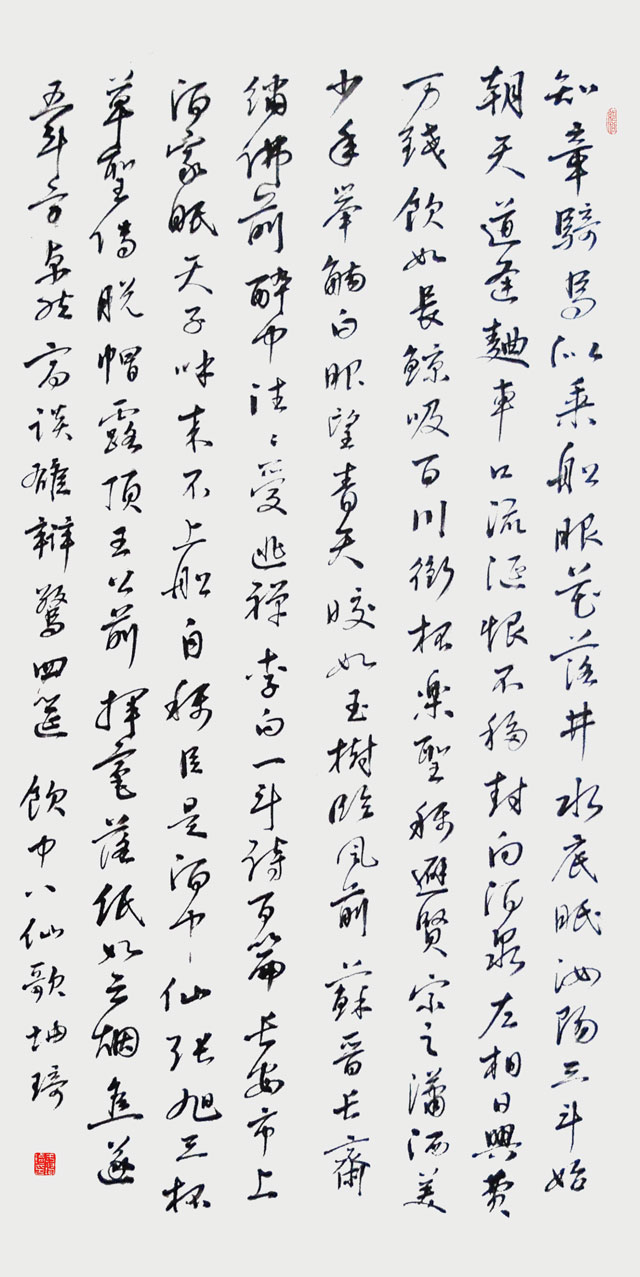 知章騎馬似乘船眼花落井水底眠汝陽三斗始
朝天道逢麯車口流涎恨不移封向酒泉左相日興費
万錢飲如長鯨吸百川銜杯楽聖稱避賢宗之瀟洒美
少年舉觴白眼望青天皎如玉樹臨風前蘇晉長齋
繡佛前醉中往々愛逃禪李白一斗詩百篇長安市上
酒家眠天子呼来不上船自稱臣是酒中仙張旭三杯
草聖傳脱帽露頂王公前揮毫落紙如云烟焦遂
五斗方卓然高談雄辯驚四筵 飲中八仙歌 坤琦